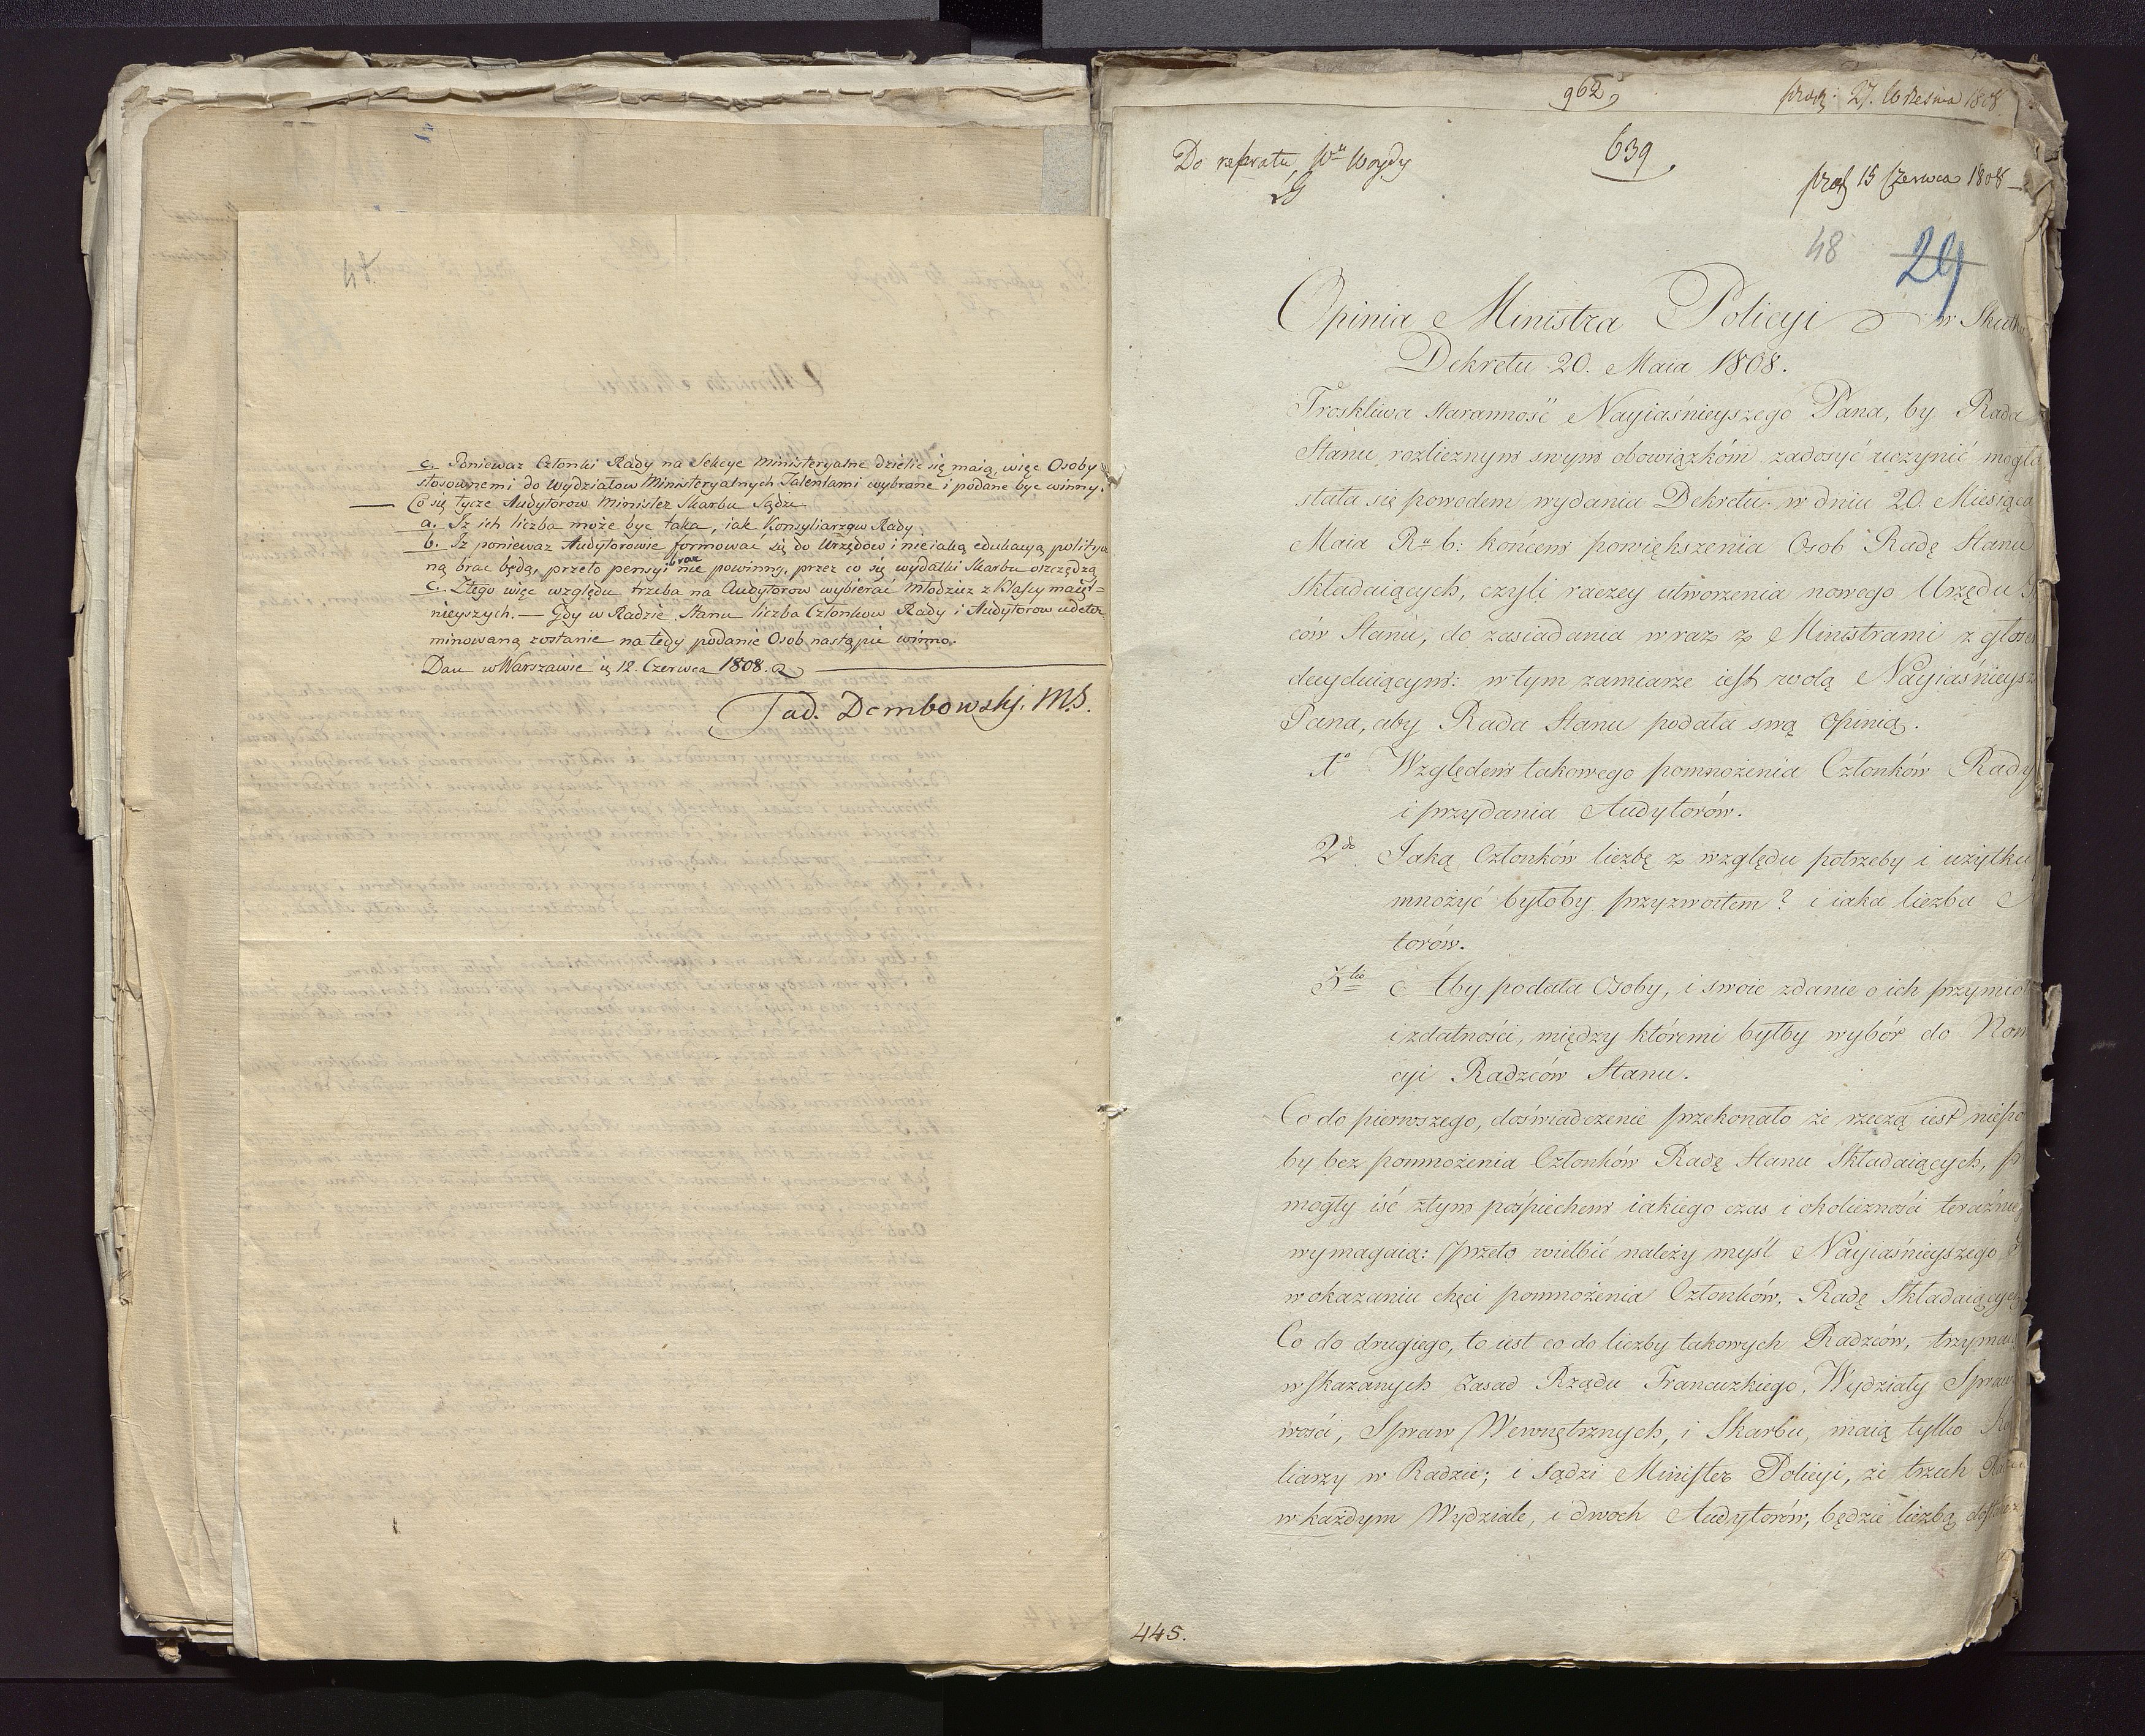 47.
c. Ponieważ Członki Rady na Sekcye Ministeryalne dzielić się maią, więc Osoby
stosownemi do Wydziałow Ministeryalnych Talentami wybrane i podane być winny.
Co się tycze Audytorow Minister Skarbu Sądzi
a. Iż ich liczba może być taka, iak Konsyliarzow Rady
b. Iż ponieważ Audytorowie formować się do Urzędow i nieiaką edukacyą polityz
ną brac będą, przeto pensyi brac nie powinny, przez co się wydatki Skarbu oszczędzą
c. Ztego więc względu trzeba na Audytorow wybierać Młodzież z Klassy maięt=
nieyszych. — Gdy w Radzie Stanu liczba Członkow Rady i Audytorow udeter
minowaną zostanie na tedy podanie Osob nastąpić winno.
Dan w Warszawie d. 12. Czerwca 1808.
Tad. Dembowski. M.S.
962,
prod: 27. Września 1808
Do referatu Wu Woydy
639
prod 15 Czerwca 1808
48 29
Opinia Ministra Policyi w Skutku
Dekretu 20. Maia 1808.
Troskliwa staranność Nayiaśnieyszego Pana, by Rada
Stanu rozlicznym swym obowiązkóm zadosyć uczynić mogła
stała się powodem wydania Dekretu w dniu 20. Miesiąca
Maia Ru b: końcem powiększenia Osob Radę Stanu
składaiących, czyli raczey utworzenia nowego Urzędu
ców Stanu, do zasiadania wraz z Ministrami z głosem
decyduiącym: w tym zamiarze iest wolą Nayiaśnieysz
Pana, aby Rada Stanu podała swą opinią.
1o Względem takowego pomnożenia Członków Rady
i przydania Audytorów.
2do Jaką Członków liczbę z względu potrzeby i użytku
mnożyć byłoby przyzwoitem? i iaka liczba A
torów.
3tio Aby podała Osoby, i swoie zdanie o ich przymio
i zdatności, między któremi byłby wybór do Nom
cyi Radzców Stanu.
Co do pierwszego, doświadczenie przekonało że rzeczą iest niepo
by bez pomnożenia Członków Radę Stanu Składaiących, p
mogły iść z tym pośpiechem iakiego czas i okoliczności teraźniey
wymagaią: przeto wielbić należy myśl Nayiaśnieyszego P
w okazaniu chęci pomnożenia Członków, Radę Składaiących
Co do drugiego, to iest co do liczby takowych Radzców, trzymaiąc
wskazanych zasad Rządu Francuzkiego, Wydziały Spraw
wości, Spraw Wewnętrznych, i Skarbu, maią tylko Ko
liarzy w Radzie; i sądzi Minister Policyi, że trzech Radz
w każdym Wydziale, i dwoch Audytorów, będzie liczbą dostatecz
445.